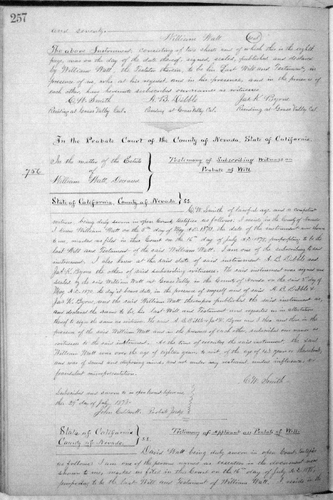 257
and seventy.
William Watt (seal)
The above Instrument consisting of two sheets one of which this is the eighth
page, was on the day of the date thereof, signed, sealed, published and declared
by William Watt, the Testator therein, to be his Last Will and Testament, in
presence of us, who at his request, and in his presence, and in the presence of
each other have hereunto subscribed our names as witnesses
C. W. Smith A. B. Dibble Jack R. Byrne
Residing at Grass Valley Cal. Residing at Grass Valley Cal. Residing at Grass Valley Cal.
In the Probate Court of the County of Nevada, State of California.
756
In the matter of the Estate
of
William Watt, Deceased
Testimony of Subscribing Witness on
Probate of Will.
State of California, County of Nevada } SS
C. W. Smith, of lawful age, and a competent
witness, being duly sworn in open Court, testifies as follows: I reside in the County of Nevada
I knew William Watt on the day of May A.D. 1870, the date of the instrument now shown
to me, marked as filed in this Court on the day of July A.D. 1878, purporting to be the
Last Will and Testament of the said William Watt. I am one of the subscribing witnesses to said
instrument. I also knew at the said date of said instrument A. B. Dibble and
Jack R. Byrne the other of said subscribing witnesses. The said instrument was signed and
sealed by the said William Watt at Grass Valley in the County of Nevada on the said day of
May A.D. 1870, the day it bears date, in the presence of myself and of said A. B. Dibble &
Jack R. Byrne, and the said William Watt thereupon published the said instrument as,
and declared the same to be his Last Will and Testament and requested us in attestation
thereof to sign the same as witnesses. The said A. B. Dibble & Jack R. Byrne and I then and there in the
presence of the said William Watt and in the presence of each other subscribed our names as
witnesses to the said instrument. At the time of executing the said instrument the said
William Watt was over the age of eighteen years, to wit, of the age of years or thereabout,
and was of sound and disposing mind, and not under any restraint, undue influence or
fraudulent misrepresentation.
C. W. Smith.
Subscribed and sworn to in open Court before me
this 29th day of July 1878.
John Caldwell Probate Judge
State of California }
County of Nevada. } SS.
Testimony of Applicant on Probate of Will
David Watt being duly sworn in open Court, testifies
as follows: I am one of the persons named as executors in the instrument now
shown to me and marked as filed in this Court on the day of July A.D. 1878,
purporting to be the Last Will and Testament of William Watt. I reside in the